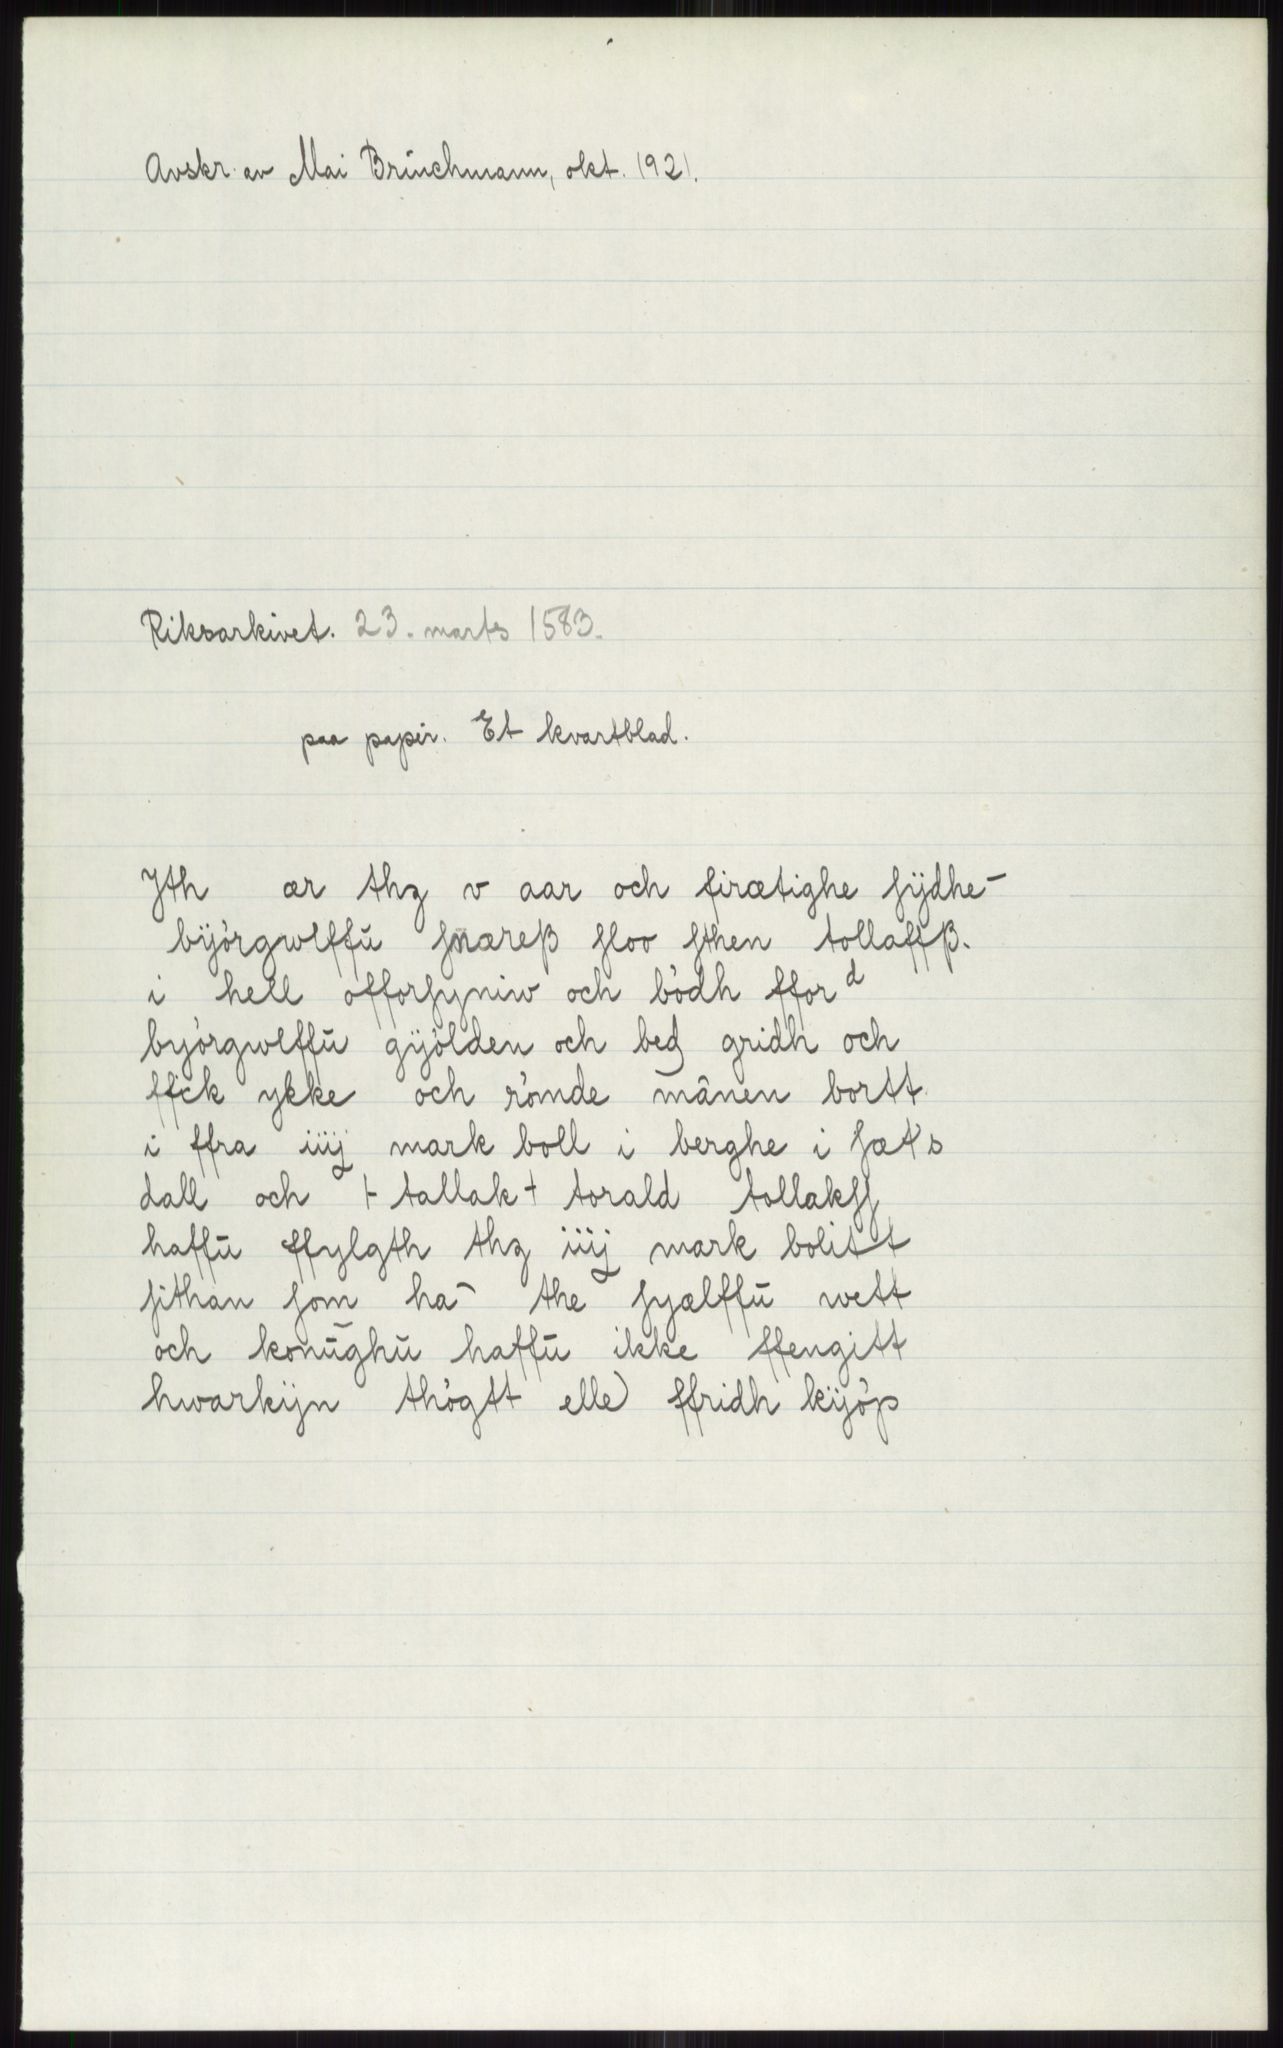 Avskr. av Mai Brúchmann, okt. 1921.
Riksarkivet. 23. marts 1583.
paa papir. Et kvartblad.
Jth ær thz v aar och firætighe sÿdhe-
bÿórgwlffū snæreß sloo sthen tollaffß.
i hell offorsyniw och bódh fford
byórgwlffū gÿólden och beg gridh och
ffick ykke och rómde mānen bortt
i ffra iiij mark boll i berghe i sæt's
dall och ⊦ tallak + torald tollakss
haffū ffylgth thz iiij mark bolitt
sithan som ha- the syælffū wett
och konūghū haffū ikke ffengitt
hwarkÿn thógtt elle) ffridh kÿóp